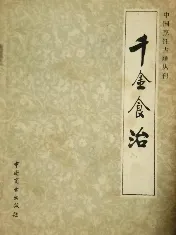 中国烹饪古籍丛刊
千金食治
中国商业出版社